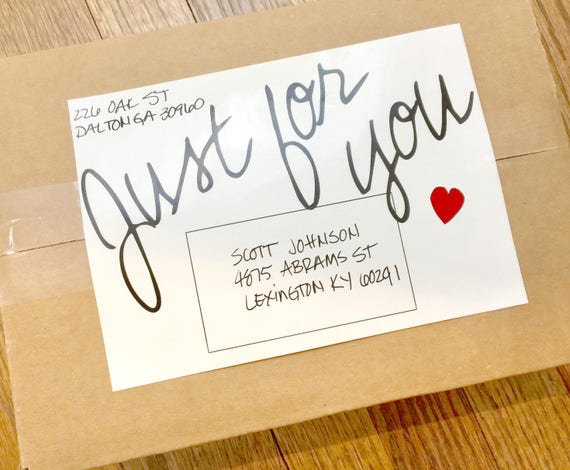 226 OAK ST
DALTON GA 30960
Just for
you
SCOTT JOHNSON
4875 ABRAMS ST
LEXINGTON KY 60241